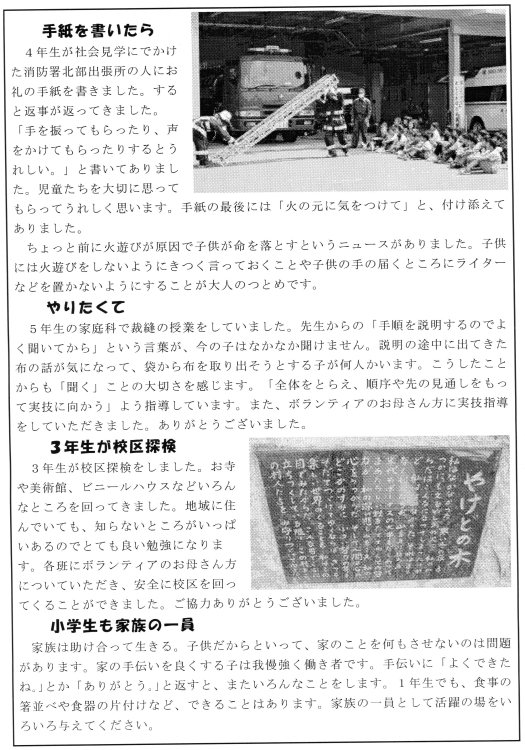 手紙を書いたら
４年生が社会見学にでかけ
た消防署北部出張所の人にお
礼の手紙を書きました。する
と返事が返ってきました。
「手を振ってもらったり、声
をかけてもらったりするとう
れしい。」と書いてありまし
た。児童たちを大切に思って
もらってうれしく思います。手紙の最後には「火の元に気をつけて」と、付け添えて
ありました。
ちょっと前に火遊びが原因で子供が命を落とすというニュースがありました。子供
には火遊びをしないようにきつく言っておくことや子供の手の届くところにライター
などを置かないようにすることが大人のつとめです。
やりたくて
５年生の家庭科で裁縫の授業をしていました。先生からの「手順を説明するのでよ
く聞いてから」という言葉が、今の子はなかなか聞けません。説明の途中に出てきた
布の話が気になって、袋から布を取り出そうとする子が何人かいます。こうしたこと
からも「聞く」ことの大切さを感じます。「全体をとらえ、順序や先の見通しをもっ
て実技に向かう」よう指導しています。また、ボランティアのお母さん方に実技指導
をしていただきました。ありがとうございました。
３年生が校区探検
３年生が校区探検をしました。お寺
や美術館、ビニールハウスなどいろん
なところを回ってきました。地域に住
んでいても、知らないところがいっぱ
いあるのでとても良い勉強になりま
す。各班にボランティアのお母さん方
についていただき、安全に校区を回っ
てくることができました。ご協力ありがとうございました。
やけどの木
小学生も家族の一員
家族は助け合って生きる。子供だからといって、家のことを何もさせないのは問題
があります。家の手伝いを良くする子は我慢強く働き者です。手伝いに「よくできた
ね。」とか「ありがとう。」と返すと、またいろんなことをします。１年生でも、食事の
箸並べや食器の片付けなど、できることはあります。家族の一員として活躍の場をい
ろいろ与えてください。